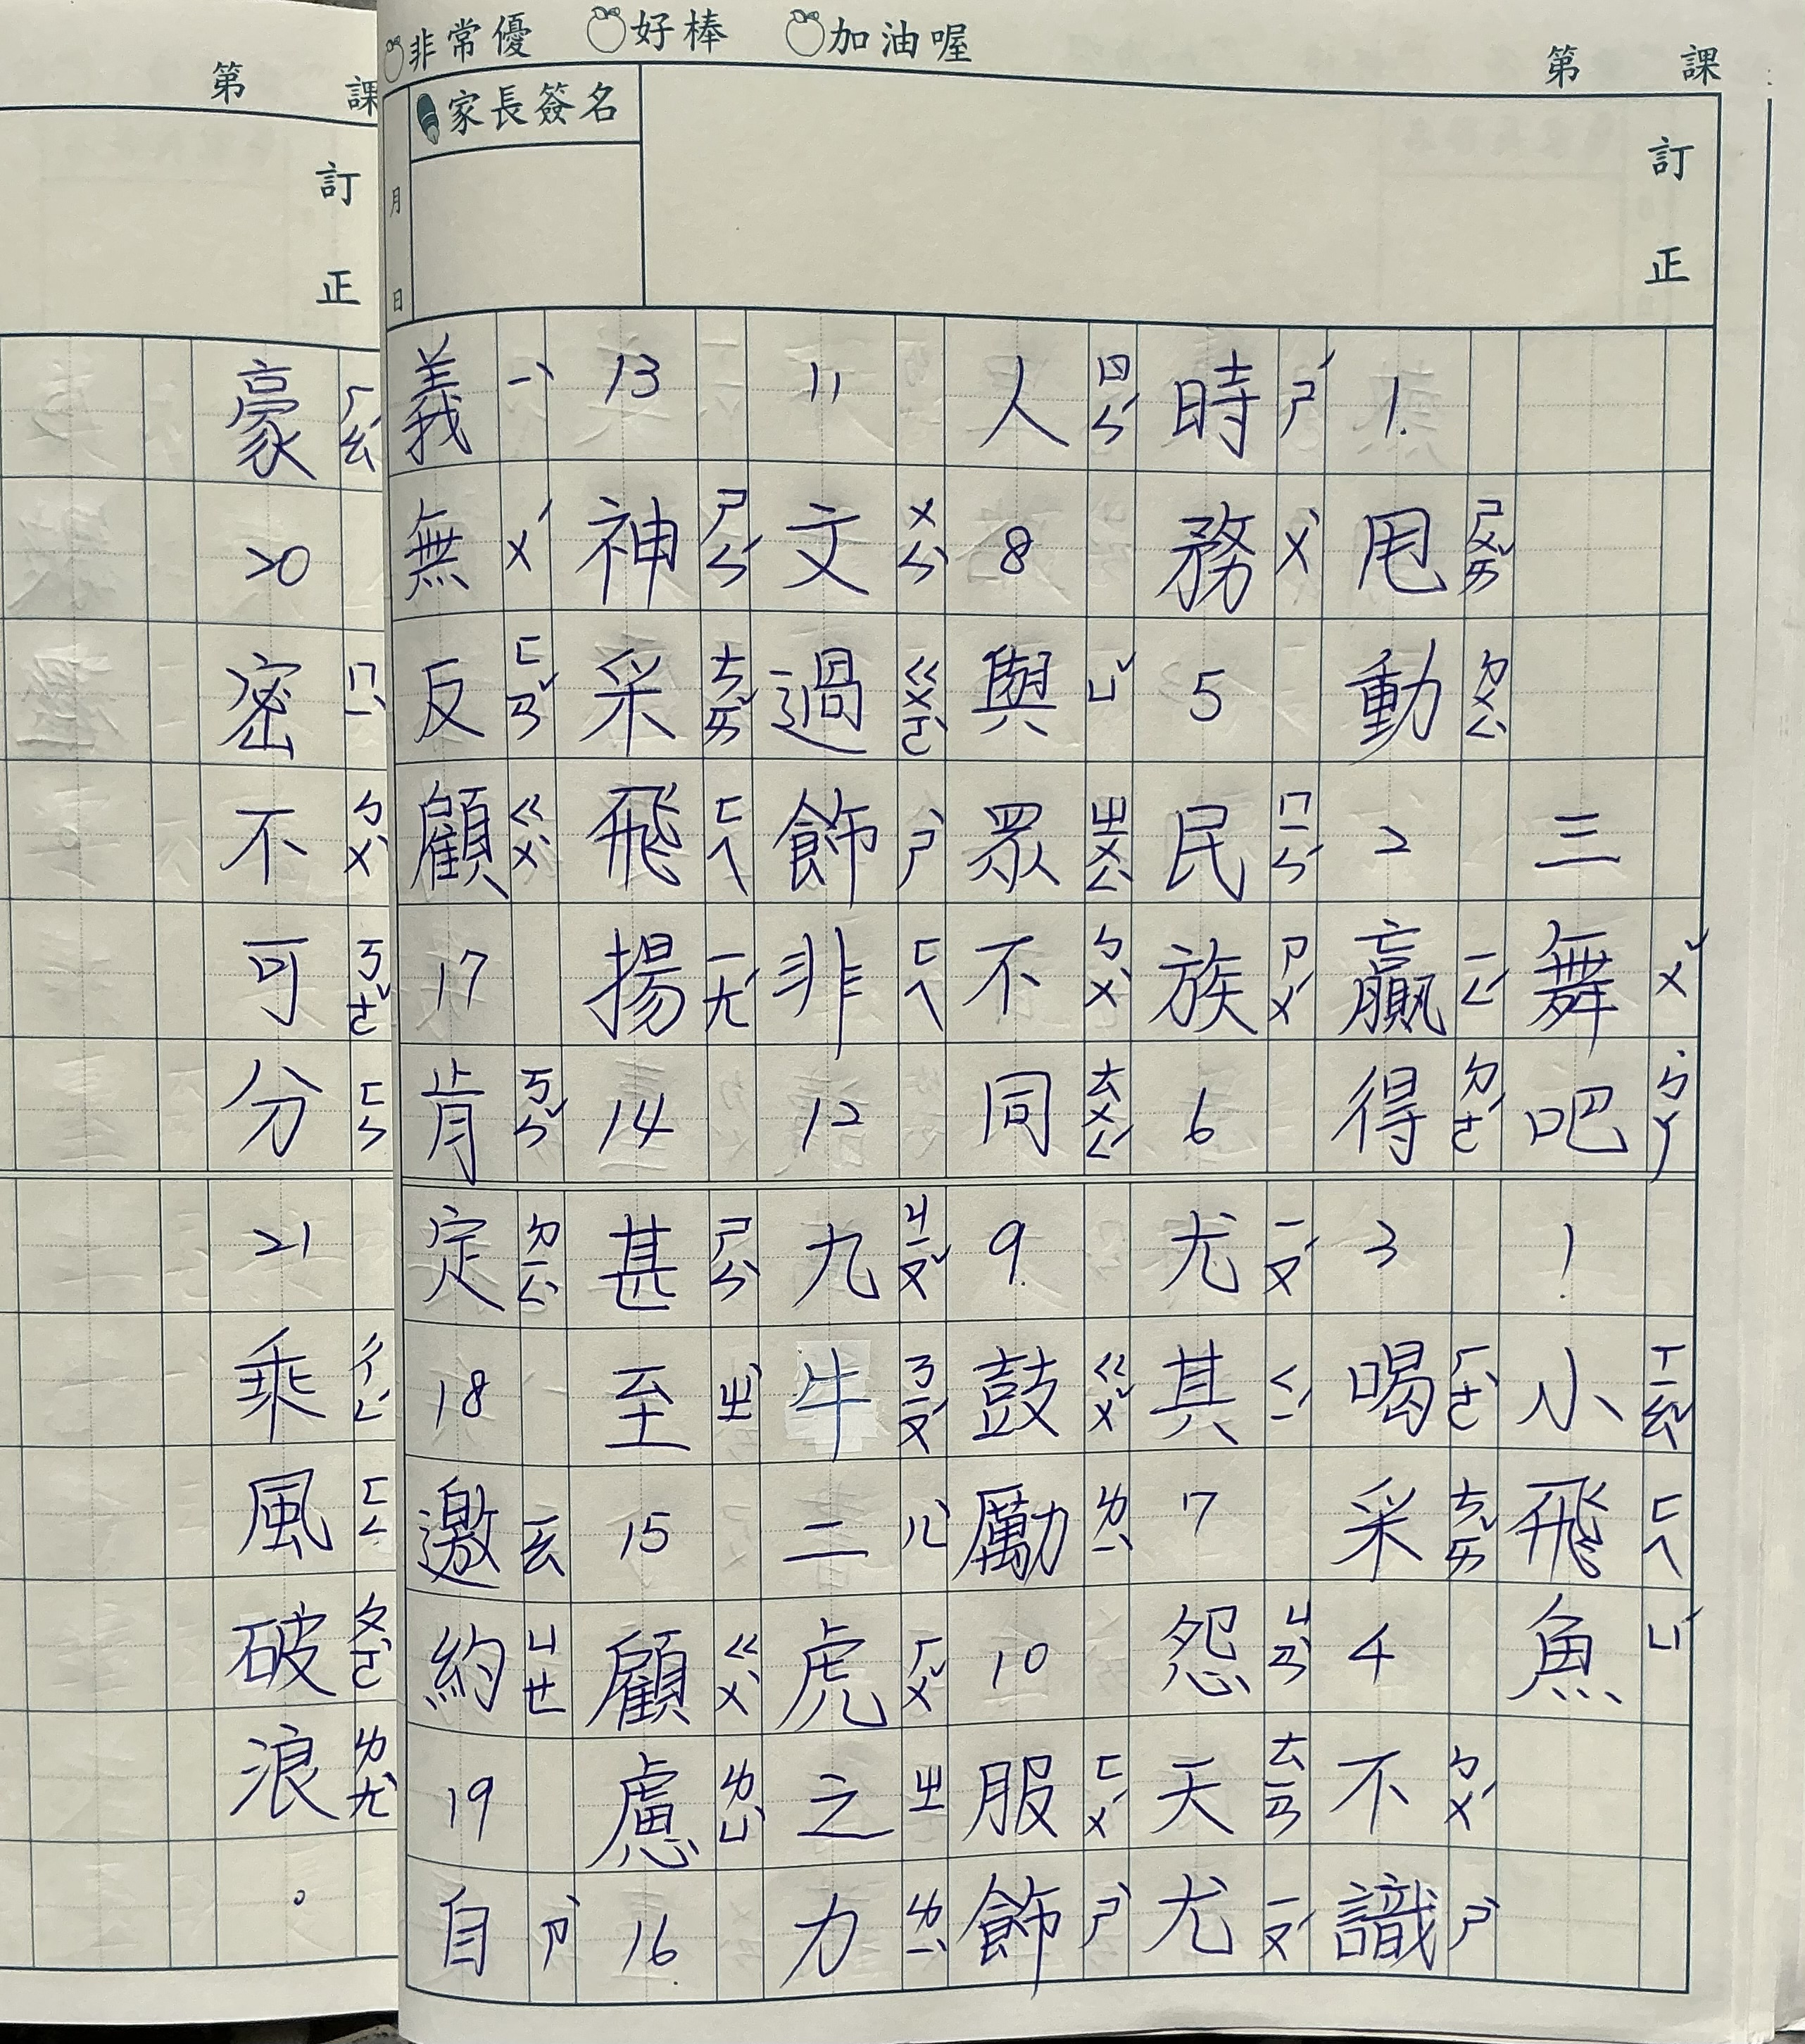 非常優 好棒 加油喔
第 課
家長簽名
月 日
訂正
三舞ㄨˇ吧ㄅㄚ˙！小ㄒㄧㄠˇ飛ㄈㄟ魚ㄩˊ
1.甩ㄕㄨㄞˇ動ㄉㄨㄥˋ2贏ㄧㄥˊ得ㄉㄜˊ3喝ㄏㄜˋ采ㄘㄞˇ4不ㄅㄨˊ識ㄕˋ
時ㄕˊ務ㄨˋ5民ㄇㄧㄣˊ族ㄗㄨˊ6尤ㄧㄡˊ其ㄑㄧˊ7怨ㄩㄢˋ天ㄊㄧㄢ尤ㄧㄡˊ
人ㄖㄣˊ8與ㄩˇ眾ㄓㄨㄥˋ不ㄅㄨˋ同ㄊㄨㄥˊ9.鼓ㄍㄨˇ勵ㄌㄧˋ10服ㄈㄨˊ飾ㄕˋ
11文ㄨㄣˋ過ㄍㄨㄛˋ飾ㄕˋ非ㄈㄟ12九ㄐㄧㄡˇ牛ㄋㄧㄡˊ二ㄦˋ虎ㄏㄨˇ之ㄓ力ㄌㄧˋ
13神ㄕㄣˊ采ㄘㄞˇ飛ㄈㄟ揚ㄧㄤˊ14甚ㄕㄣˋ至ㄓˋ15顧ㄍㄨˋ慮ㄌㄩˋ16.
義ㄧˋ無ㄨˊ反ㄈㄢˇ顧ㄍㄨˋ17肯ㄎㄣˇ定ㄉㄧㄥˋ18邀ㄧㄠ約ㄩㄝ19自ㄗˋ
第 課
訂正
豪ㄏㄠˊ20密ㄇㄧˋ不ㄅㄨˋ可ㄎㄜˇ分ㄈㄣ21乘ㄔㄥˊ風ㄈㄥ破ㄆㄛˋ浪ㄌㄤˋ。